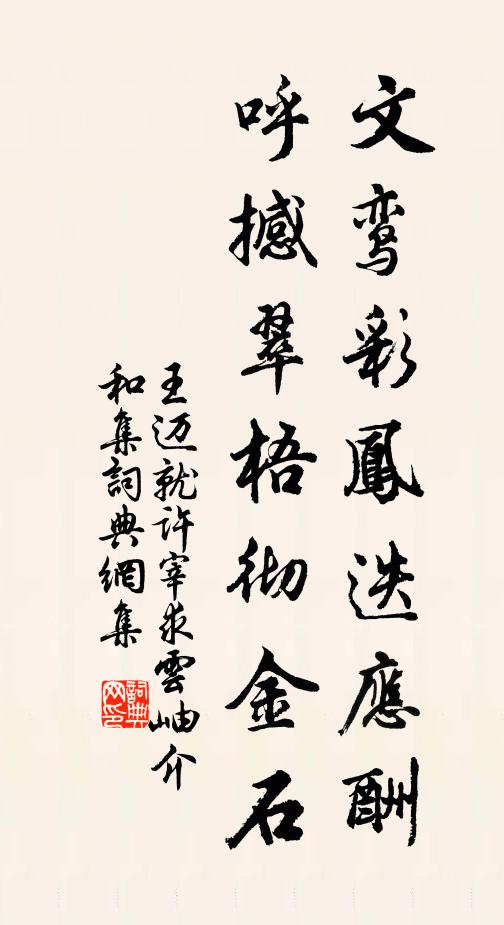 文鸾彩鳳迭應酬
呼撼翠梧彻金石
王迈就许宰求雲岫介
和集詞典網集
詞典网印